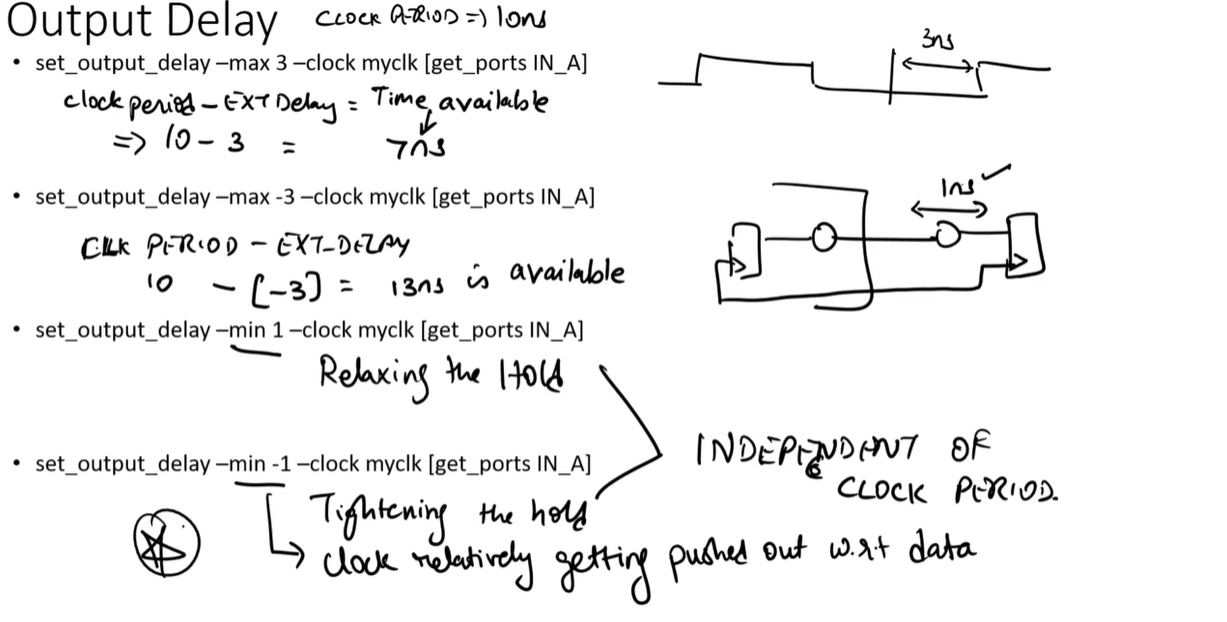 Output Delay CLOCK PERIOD => 10ns
• set_output_delay –max 3 –clock myclk [get_ports IN_A]
3ns
Clock period - EXT Delay = Time available
=> 10 - 3 = 7ns
• set_output_delay –max -3 –clock myclk [get_ports IN_A]
1ns ✓
CLK PERIOD - EXT-DELAY
10 - [-3] = 13ns is available
• set_output_delay –min 1 –clock myclk [get_ports IN_A]
Relaxing the Hold
INDEPENDENT OF
CLOCK PERIOD.
• set_output_delay –min -1 –clock myclk [get_ports IN_A]
Tightening the hold
clock relatively getting pushed out w.r.t data